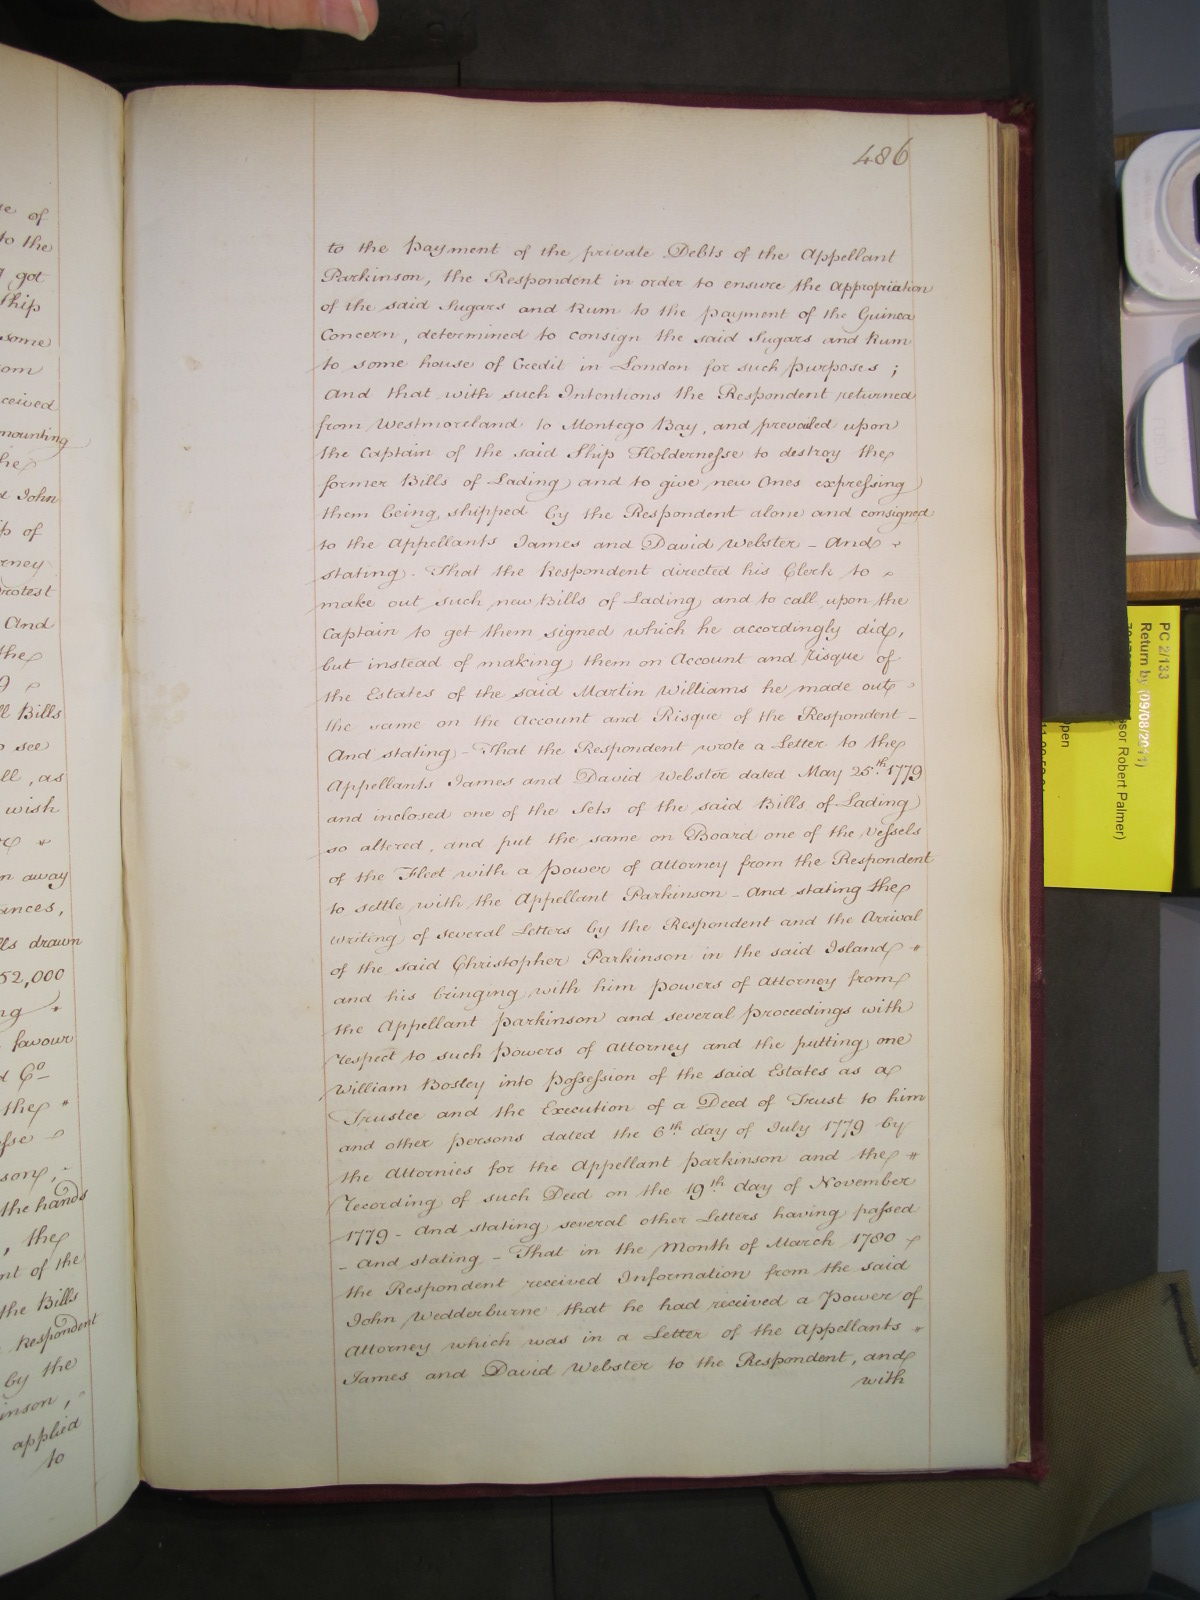 486
to the Payment of the private Debts of the Appellant
Parkinson, the Respondent in order to ensure the appropriation
of the said Sugars and Rum to the payment of the Guinea
Concern, determined to consign the said Sugars and Rum
to some house of Credit in London for such purposes;
And that with such Intentions the Respondent returned
from Westmoreland to Montego Bay, and prevailed upon
the Captain of the said Ship Holdernesse to destroy the
former Bills of Lading and to give new Ones expressing
them being shipped by the Respondent alone and consigned
to the Appellants James and David Webster - And
stating - That the Respondent directed his Clerk to
make out such new Bills of Lading and to call upon the
Captain to get them signed which he accordingly did,
but instead of making them on Account and risque of
the Estates of the said Martin Williams he made out
the same on the Account and Risque of the Respondent -
And stating - That the Respondent wrote a Letter to the
Appellants James and David Webster dated May 25th. 1779
and inclosed one of the Sets of the said Bills of Lading
so altered, and put the same on Board one of the Vessels
of the Fleet with a Power of Attorney from the Respondent
to settle with the Appellant Parkinson - And stating the
writing of several Letters by the Respondent and the Arrival
of the said Christopher Parkinson in the said Island
and his bringing with him Powers of Attorney from
the Appellant Parkinson and several Proceedings with
respect to such Powers of Attorney and the putting one
William Bosley into Possession of the said Estates as a
Trustee and the Execution of a Deed of Trust to him
and other Persons dated the 6th day of July 1779 by
the Attornies for the Appellant Parkinson and the
recording of such Deed on the 19th day of November
1779 - And stating several other Letters having passed
- And stating - That in the Month of March 1780
the Respondent received Information from the said
John Wedderburne that he had received a Power of
Attorney which was in a Letter of the Appellants
James and David Webster to the Respondent, and
with
of
to the
got
Ship
some
ceived
mounting
John
of
And
Bills
see
as
wish
away
drawn
52,000
favour
the
the hands
the
of the
the Bills
Respondent
by the
applied
to
PC 2/133
Return by (09/08/2011)
Robert Palmer)